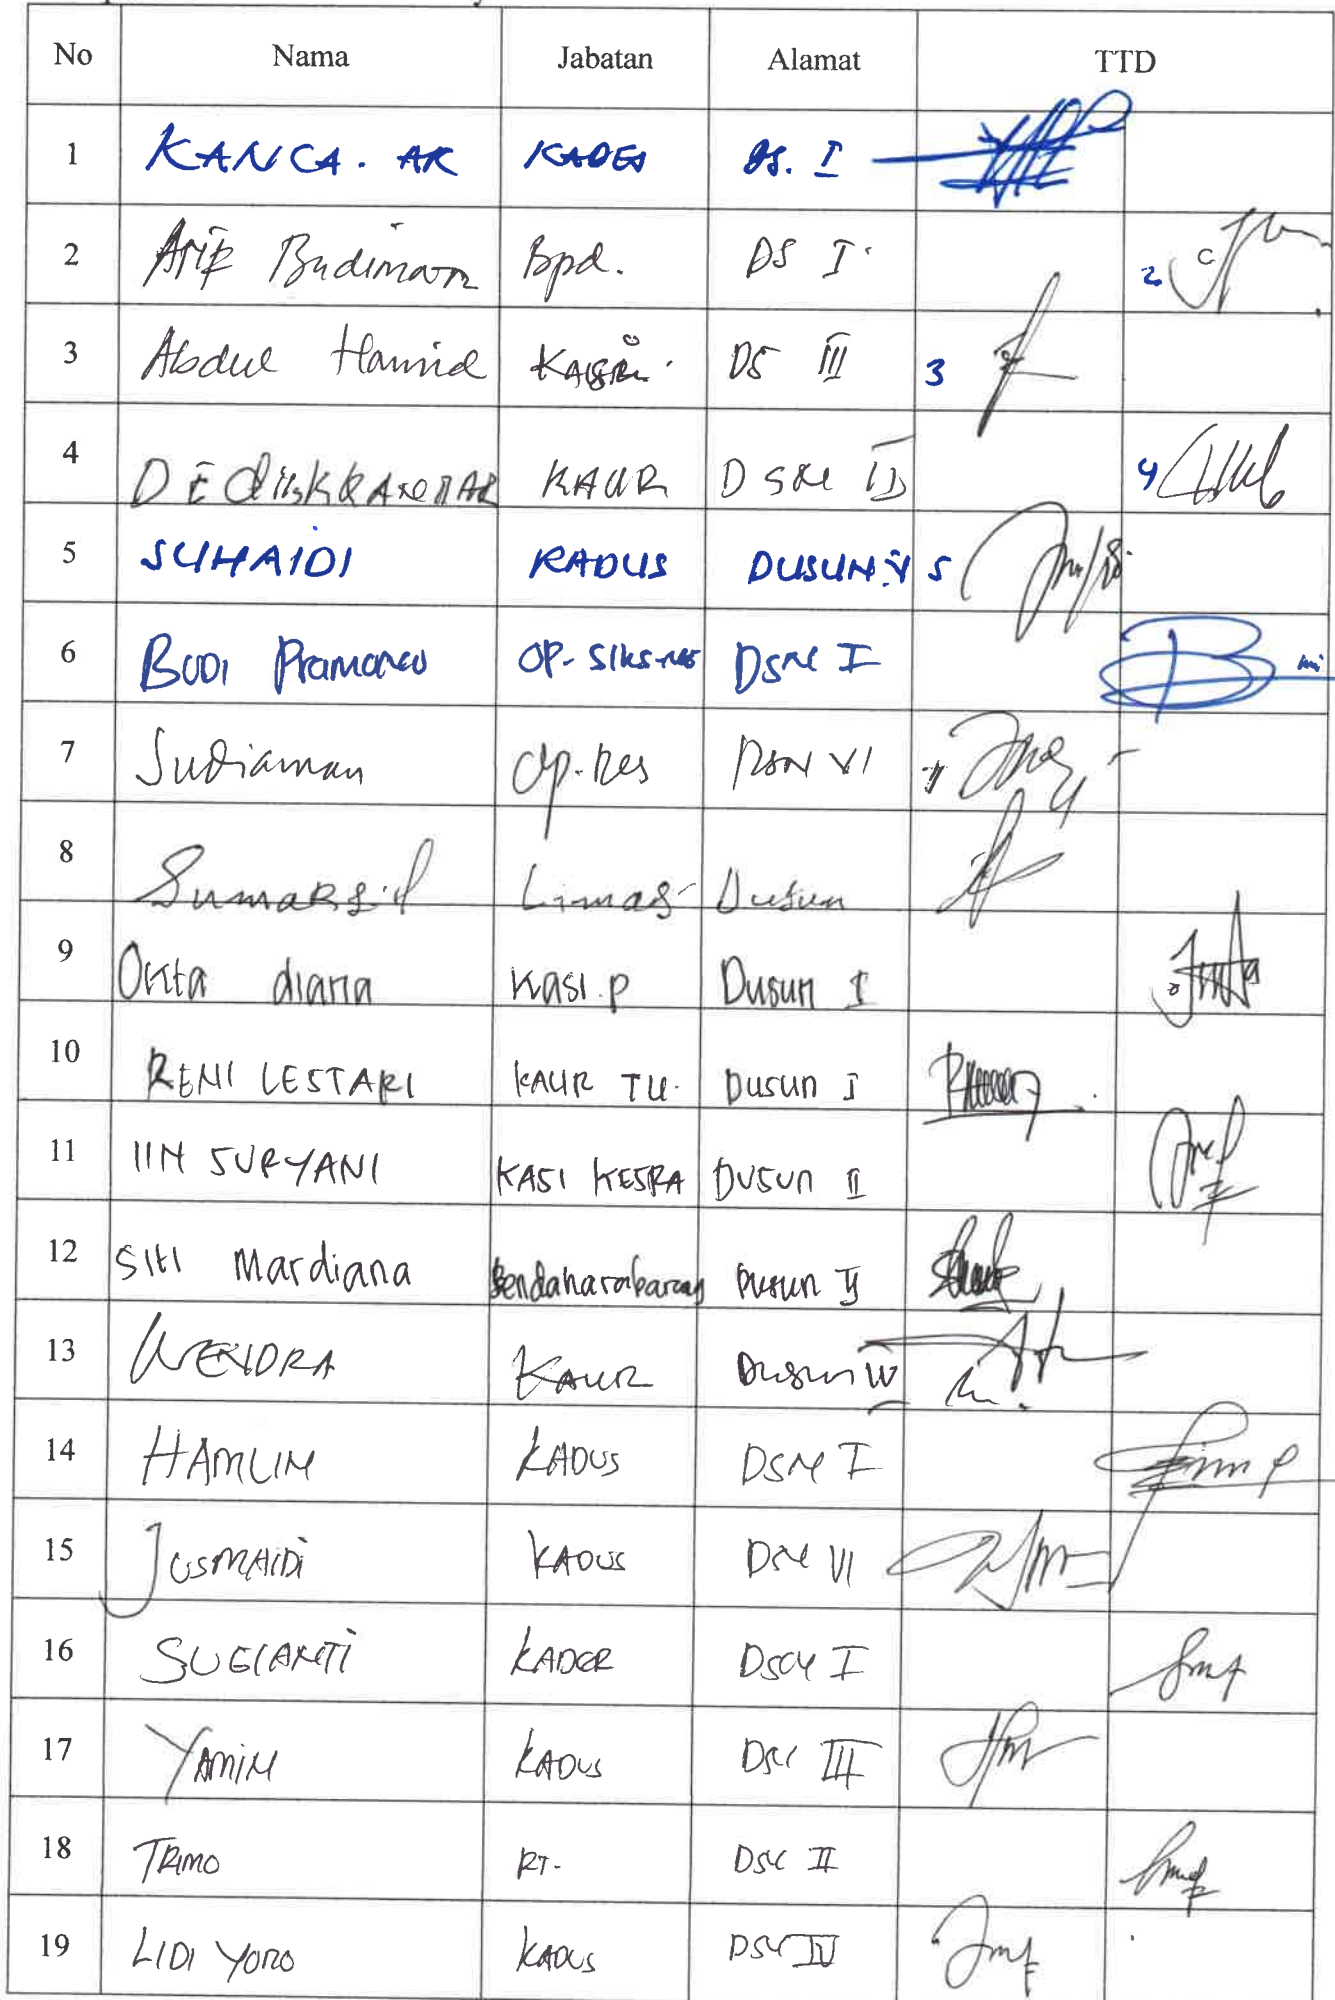 No Nama Jabatan Alamat TTD
1 KANCA. AR KADES DS. I
2 Arif Budiman Bpd. DS I 2
3 Abdul Hamid DS III 3
4 KAUR DSN II 4
5 SUHAIDI KADUS DUSUN V 5
6 BUDI Pramono OP- SIKS-NG DSN I
7 Sudiaman Op. Des DSN VI
8 Limas Dusun
9 Okta diana Kasi. P Dusun I
10 RENI LESTARI KAUR TU. Dusun I
11 IIN SURYANI KASI KESRA DUSUN II
12 Siti Mardiana Bendaharabarang Dusun II
13 WENDRA KAUR Dusun IV
14 HAMLIN KADUS DSN I
15 JUSMAIDI KADUS DSN VI
16 SUGIANTI KADER DSN I
17 YAMIN KADUS DSN III
18 TRIMO RT. DSN II
19 LIDI YONO KADUS DSN IV